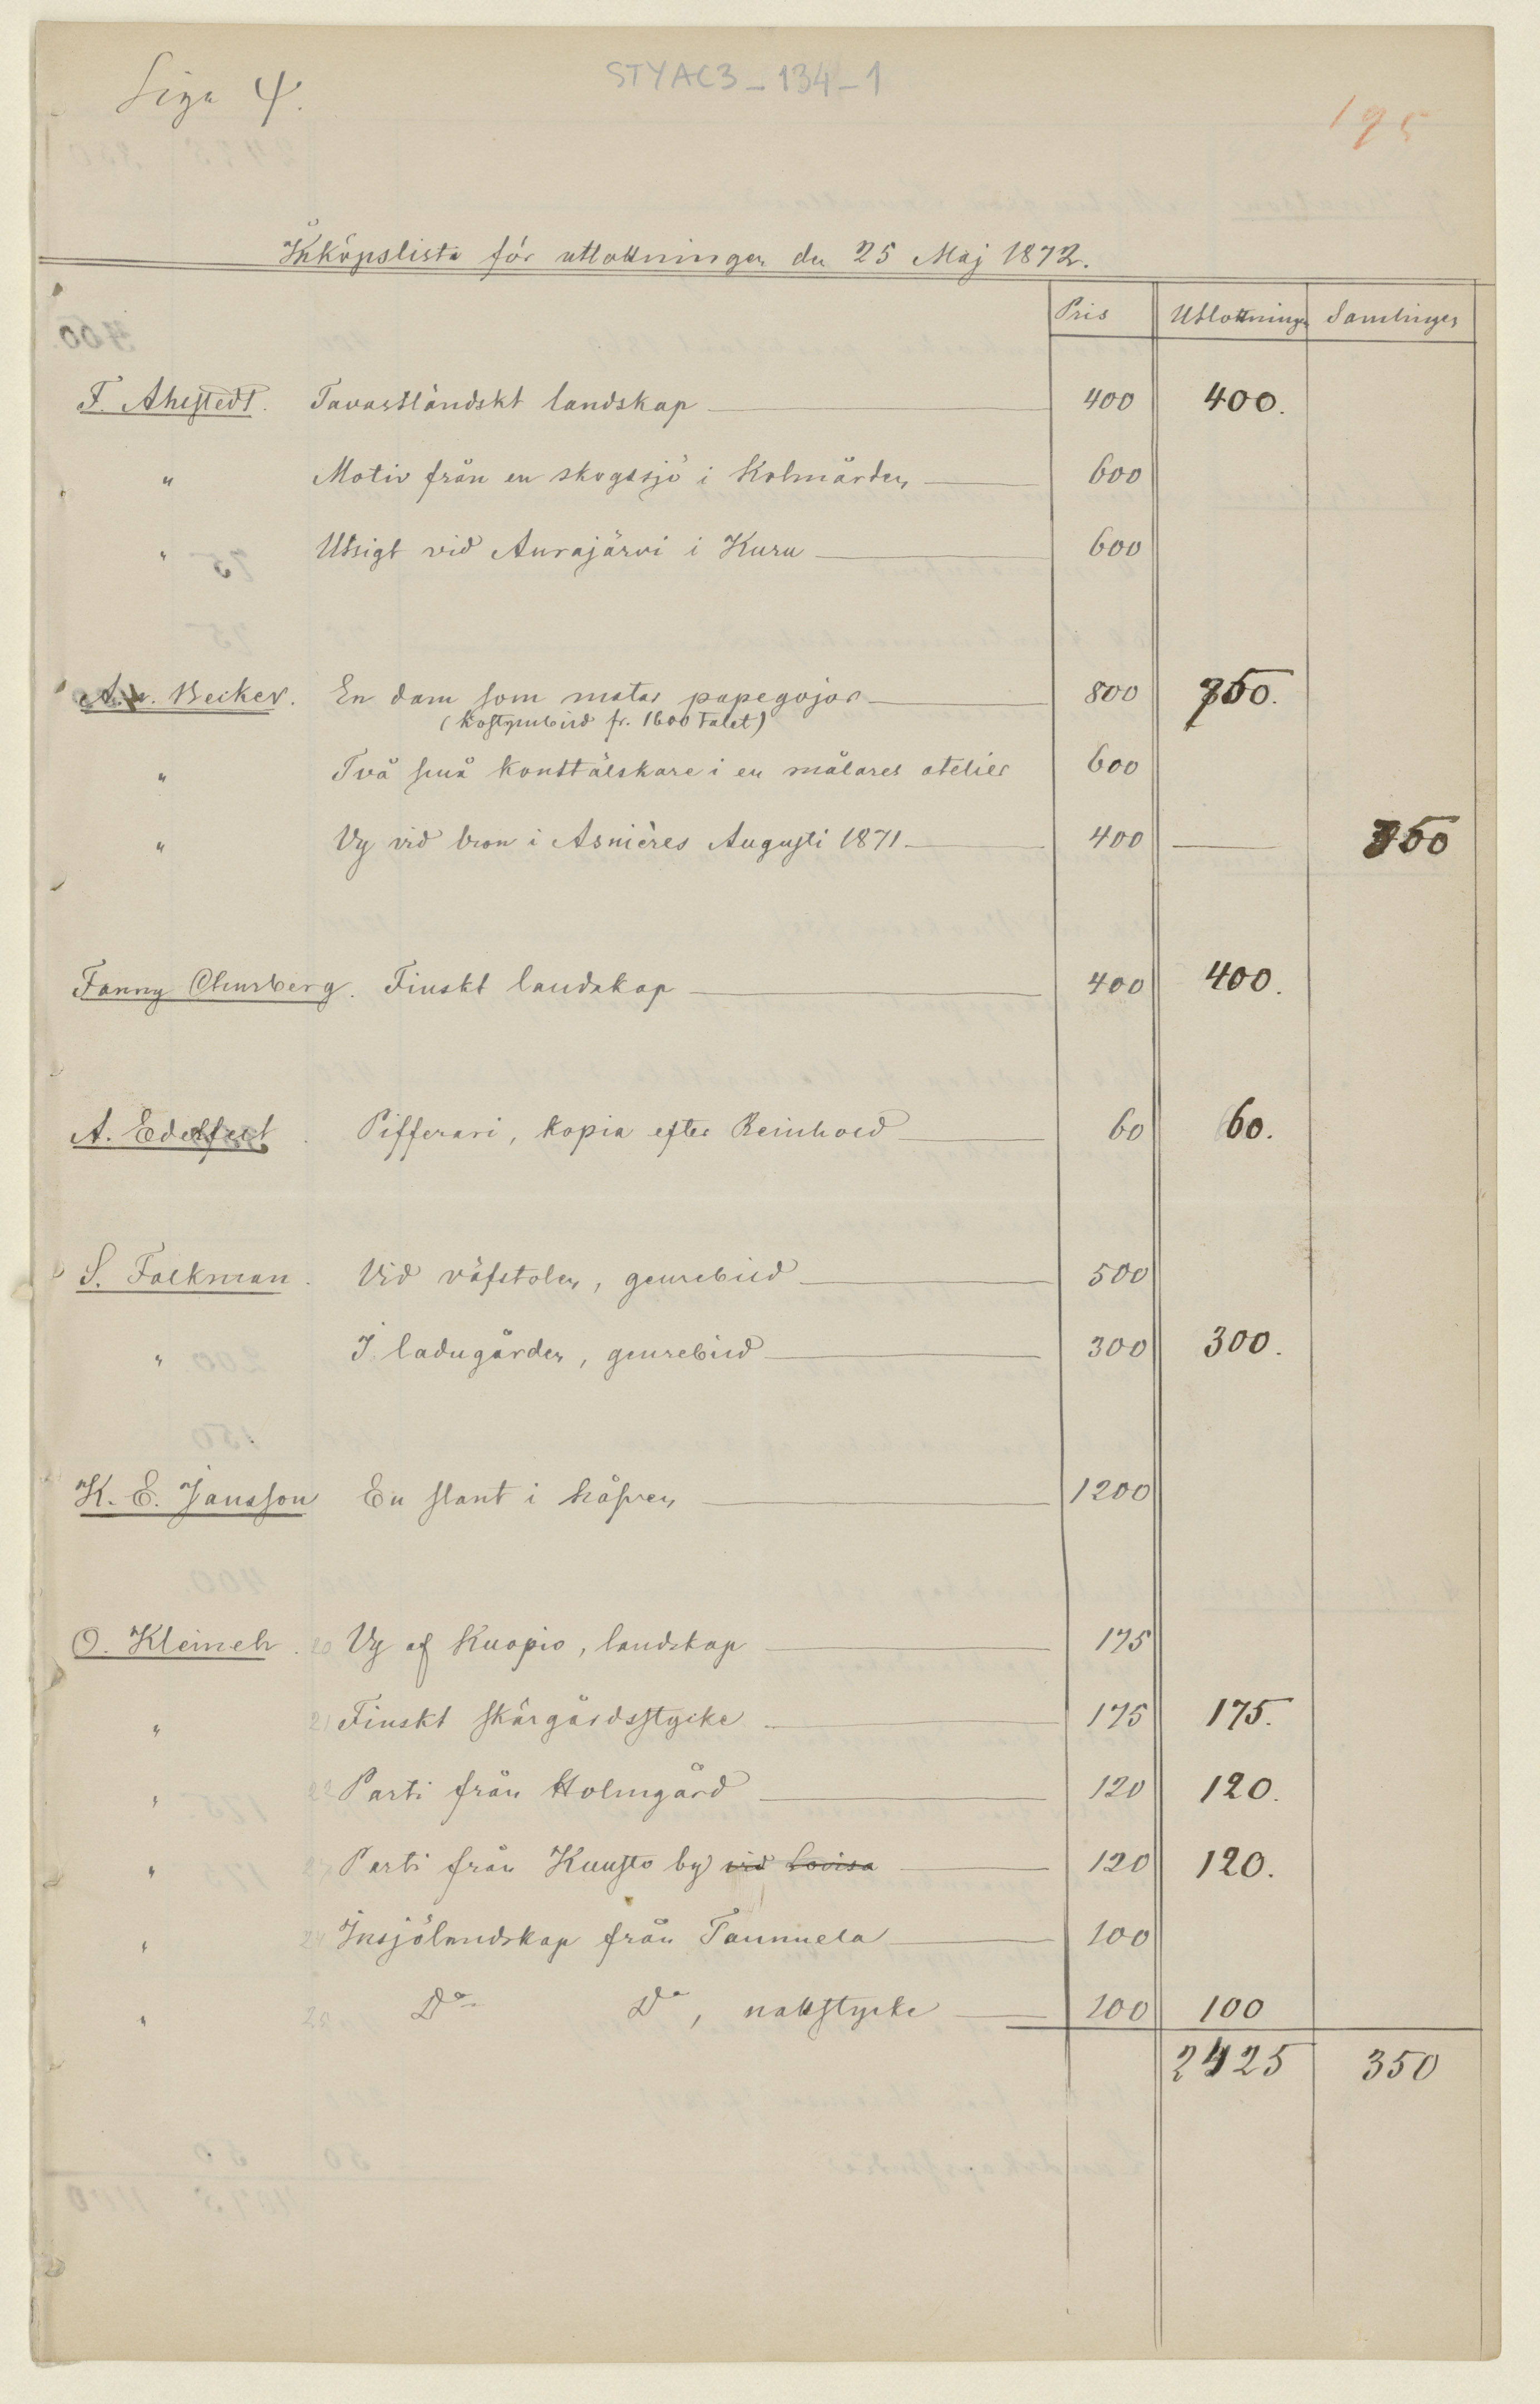 Liga 4.
STYAC3-134-1
195
Inköpslista för utlottningen den 25 Maj 1872.
Pris Utlottningen Samlingen
F. Ahlstedt. Tavastländskt landskap 400 400.
" Motiv från en skogssjö i Kolmården 600
" Utsigt vid Aurajärvi i Kuru 600
A. v. Becker. En dam som matar papegojor 800 750.
(kostymbild fr. 1600 talet)
" Två små konstälskare i en målares atelier 600
" Vy vid bron i Asnières Augusti 1871 400 350
Fanny Churberg. Finskt landskap 400 400.
A. Edelfelt. Pifferari, kopia efter Reinhold 60 60.
S. Falkman. Vid väfstolen, genrebild 500
" I ladugården, genrebild 300 300.
K. E. Jansson En slant i håfven 1200
O. Kleineh. 20 Vy af Kuopio, landskap 175
" 21 Finskt skärgårdsstycke 175 175.
" 22 Parti från Holmgård 120 120.
" 23 Parti från Kuusto by vid Lovisa 120 120.
" 24 Insjölandskap från Tammela 100
" 25 Do Do, nattstycke 100 100
2425 350